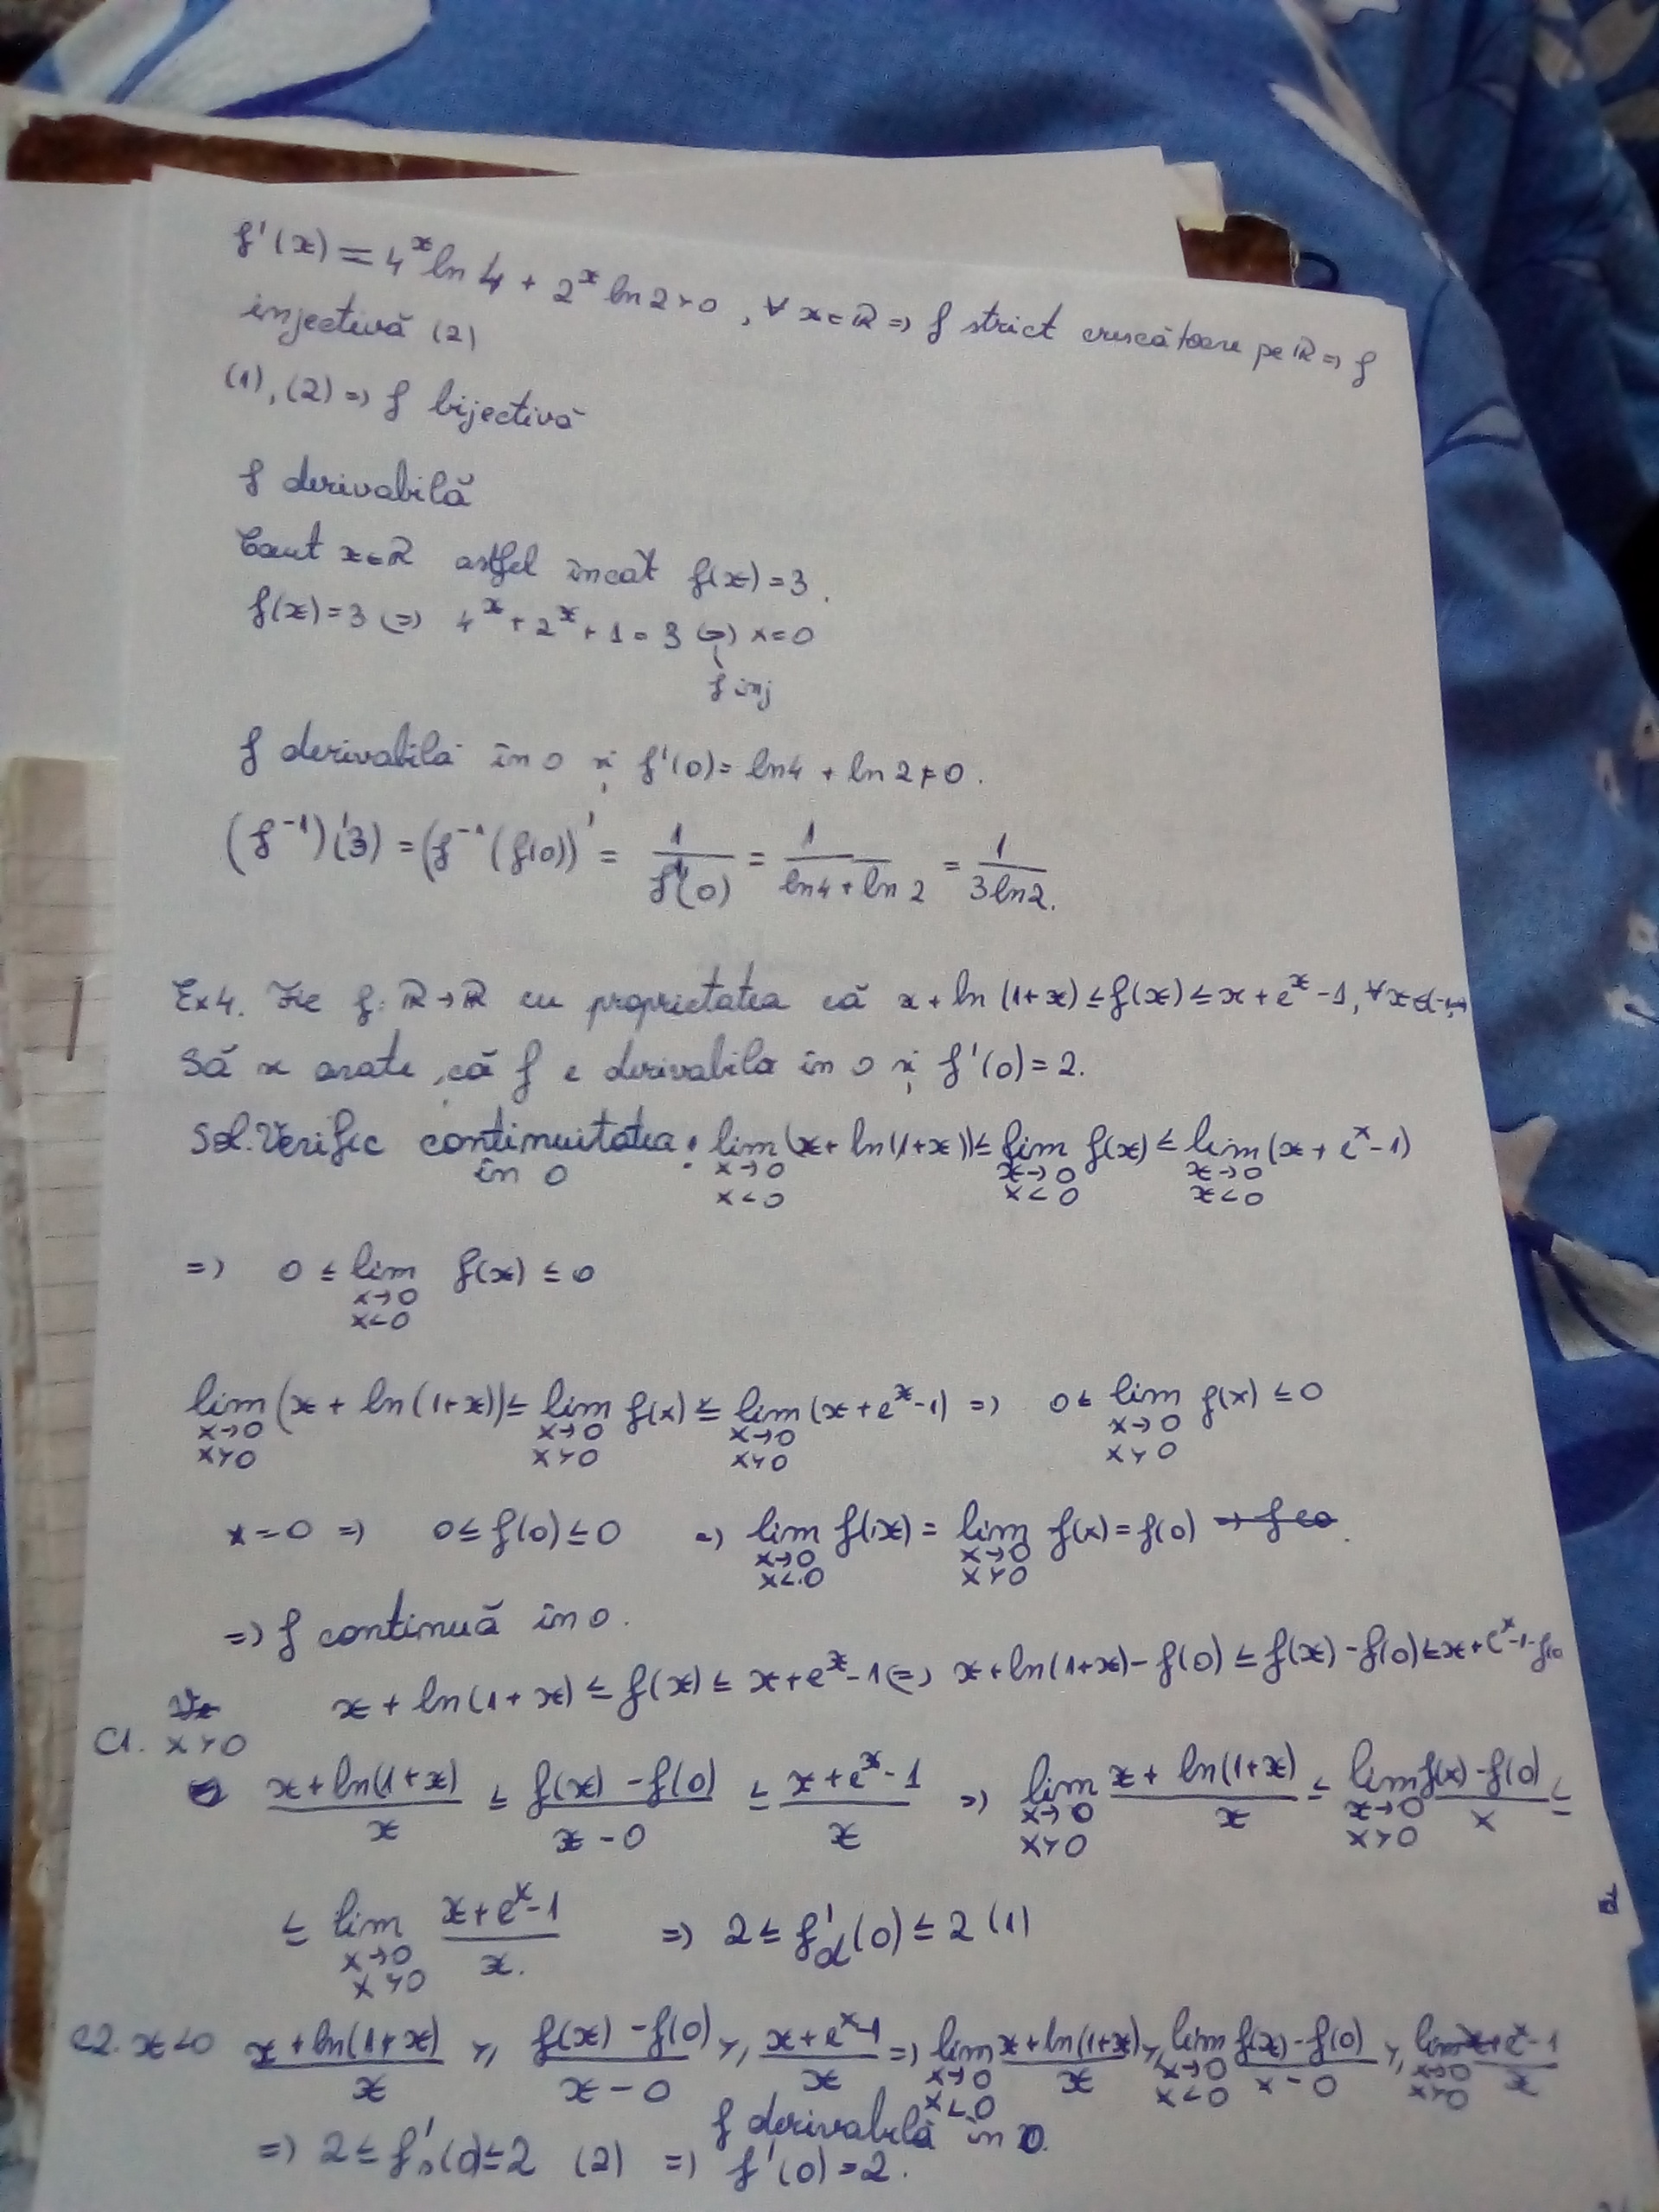 f'(x) = 4^x ln 4 + 2^x ln 2 > 0, ∀ x∈ℝ => f strict crescătoare pe ℝ => f
injectivă (2)
(1), (2) => f bijectivă
f derivabilă
Caut x∈ℝ astfel încât f(x) = 3.
f(x) = 3 (=) 4^x + 2^x + 1 = 3 (=) x = 0
f inj
f derivabilă în 0 și f'(0) = ln 4 + ln 2 ≠ 0.
(f^-1)'(3) = (f^-1(f(0)))' = 1/f'(0) = 1/(ln 4 + ln 2) = 1/(3 ln 2).
Ex4. Fie f: ℝ→ℝ cu proprietatea că x + ln (1+x) ≤ f(x) ≤ x + e^x - 1, ∀x∈(-1,
Să se arate, că f e derivabila în 0 și f'(0) = 2.
Sol. Verific continuitatea în 0: lim x→0 x<0 (x + ln(1+x)) ≤ lim x→0 x<0 f(x) ≤ lim x→0 x<0 (x + e^x - 1)
=> 0 ≤ lim x→0 x<0 f(x) ≤ 0
lim x→0 x>0 (x + ln(1+x)) ≤ lim x→0 x>0 f(x) ≤ lim x→0 x>0 (x + e^x - 1) => 0 ≤ lim x→0 x>0 f(x) ≤ 0
x = 0 => 0 ≤ f(0) ≤ 0 => lim x→0 x<0 f(x) = lim x→0 x>0 f(x) = f(0)
=> f continuă în 0.
x + ln(1+x) ≤ f(x) ≤ x + e^x - 1 (=) x + ln(1+x) - f(0) ≤ f(x) - f(0) ≤ x + e^x - 1 - f(0
C1. x>0
(x + ln(1+x))/x ≤ (f(x) - f(0))/(x - 0) ≤ (x + e^x - 1)/x => lim x→0 x>0 (x + ln(1+x))/x ≤ lim x→0 x>0 (f(x) - f(0))/x ≤
≤ lim x→0 x>0 (x + e^x - 1)/x. => 2 ≤ f'd(0) ≤ 2 (1)
C2. x<0 (x + ln(1+x))/x ≥ (f(x) - f(0))/(x - 0) ≥ (x + e^x - 1)/x => lim x→0 x<0 (x + ln(1+x))/x ≥ lim x→0 x<0 (f(x) - f(0))/(x - 0) ≥ lim x→0 x>0 (x + e^x - 1)/x
=> 2 ≤ f's(0) ≤ 2 (2) => f derivabilă în 0. f'(0) = 2.